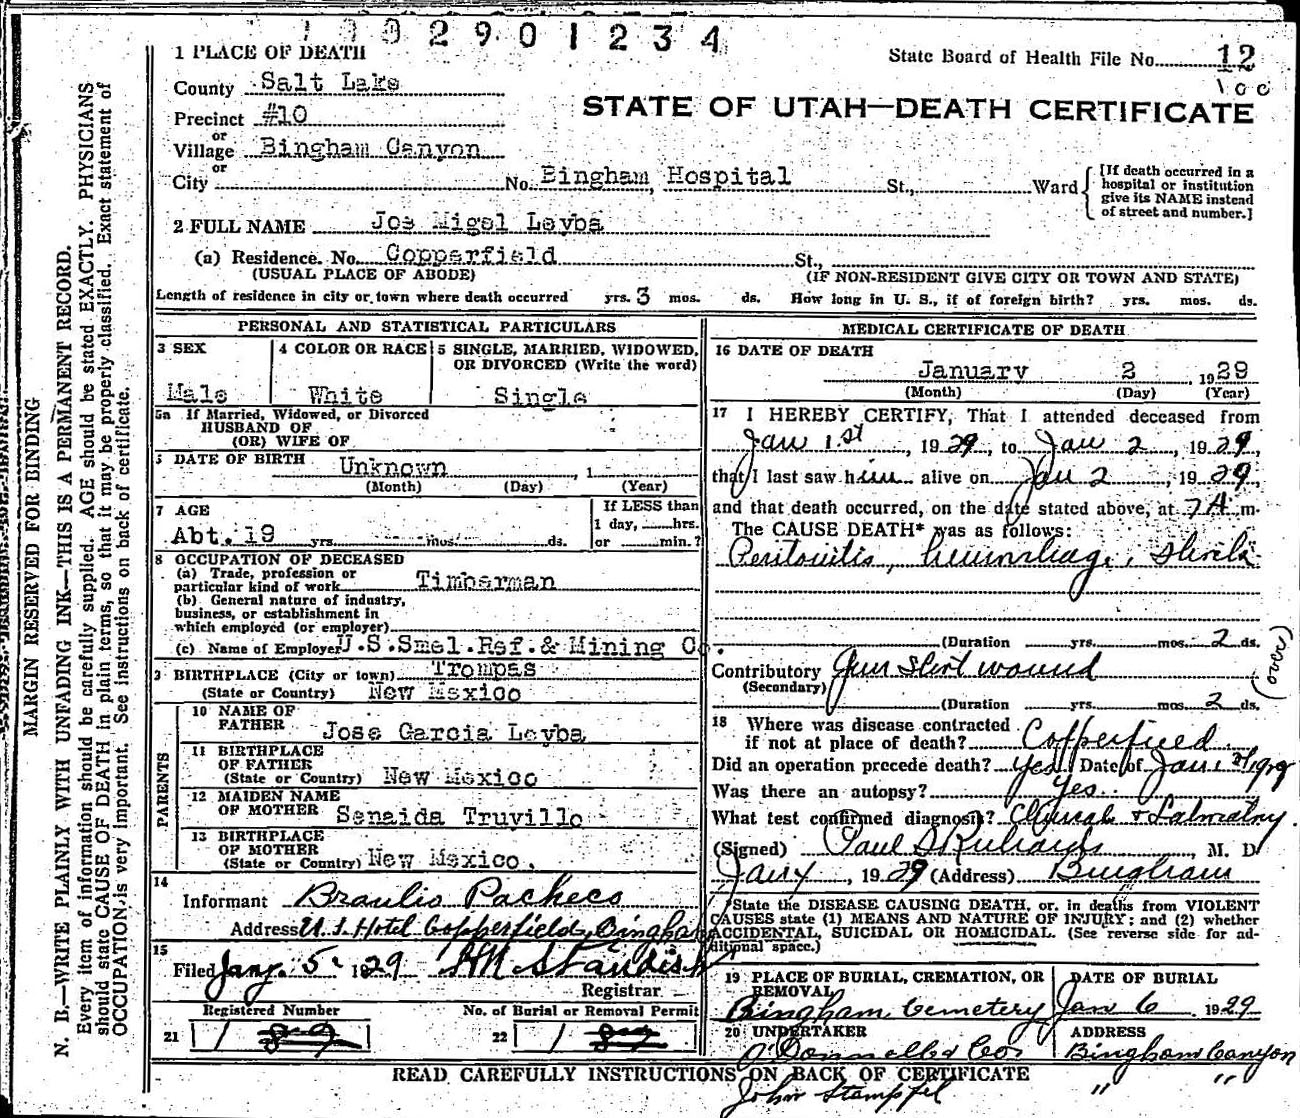 1 9 0 2 9 0 1 2 3 4
1 PLACE OF DEATH
State Board of Health File No. 12
100
County Salt Lake
STATE OF UTAH—DEATH CERTIFICATE
Precinct #10
or
Village Bingham Canyon
or
City No. Bingham Hospital St., Ward
[If death occurred in a hospital or institution give its NAME instead of street and number.]
2 FULL NAME Jos Migel Leyba
(a) Residence. No. Copperfield St.,
(USUAL PLACE OF ABODE) (IF NON-RESIDENT GIVE CITY OR TOWN AND STATE)
Length of residence in city or town where death occurred yrs. 3 mos. ds. How long in U. S., if of foreign birth? yrs. mos. ds.
PERSONAL AND STATISTICAL PARTICULARS
3 SEX 4 COLOR OR RACE 5 SINGLE, MARRIED, WIDOWED, OR DIVORCED (Write the word)
Male White Single
5a If Married, Widowed, or Divorced
HUSBAND OF
(OR) WIFE OF
DATE OF BIRTH Unknown , 1
(Month) (Day) (Year)
7 AGE If LESS than
1 day, hrs.
Abt. 19 yrs. mos. ds. or min.?
8 OCCUPATION OF DECEASED
(a) Trade, profession or
particular kind of work Timberman
(b) General nature of industry,
business, or establishment in
which employed (or employer)
(c) Name of Employer U.S.Smel.Ref.& Mining Co.
9 BIRTHPLACE (City or town) Trompas
(State or Country) New Mexico
PARENTS
10 NAME OF
FATHER Jose Garcia Leyba
11 BIRTHPLACE
OF FATHER
(State or Country) New Mexico
12 MAIDEN NAME
OF MOTHER Senaida Truvillo
13 BIRTHPLACE
OF MOTHER
(State or Country) New Mexico.
14
Informant Braulio Pacheco
Address U.S. Hotel Copperfield, Bingham
15
Filed Jany. 5. 1929 HN Standish
Registrar
Registered Number No. of Burial or Removal Permit
21 1 89 22 1 89
MEDICAL CERTIFICATE OF DEATH
16 DATE OF DEATH
January 2 , 1929
(Month) (Day) (Year)
17 I HEREBY CERTIFY, That I attended deceased from
Jan 1st , 1929, to Jan 2 , 1929,
that I last saw him alive on Jan 2 , 1929,
and that death occurred, on the date stated above, at 7 A m.
The CAUSE DEATH* was as follows:
Peritonitis, hemorrhage, shock
(Duration yrs. mos. 2 ds.
Contributory Gun shot wound
(Secondary)
(over)
(Duration yrs. mos. 2 ds.
18 Where was disease contracted
if not at place of death? Copperfield
Did an operation precede death? Yes Date of Jan 1st/1929
Was there an autopsy? Yes.
What test confirmed diagnosis? Clinical &
(Signed) Paul S Richards , M. D
Jany , 1929 (Address) Bingham
*State the DISEASE CAUSING DEATH, or, in deaths from VIOLENT
CAUSES state (1) MEANS AND NATURE OF INJURY; and (2) whether
ACCIDENTAL, SUICIDAL OR HOMICIDAL. (See reverse side for ad-
ditional space.)
19 PLACE OF BURIAL, CREMATION, OR REMOVAL DATE OF BURIAL
Bingham Cemetery Jan 6 1929
20 UNDERTAKER ADDRESS
O'Donnell & Co Bingham Canyon
John Stampfel " "
READ CAREFULLY INSTRUCTIONS ON BACK OF CERTIFICATE
MARGIN RESERVED FOR BINDING
N. B.—WRITE PLAINLY WITH UNFADING INK—THIS IS A PERMANENT RECORD.
Every item of information should be carefully supplied. AGE should be stated EXACTLY. PHYSICIANS
should state CAUSE OF DEATH in plain terms, so that it may be properly classified. Exact statement of
OCCUPATION is very important. See instructions on back of certificate.